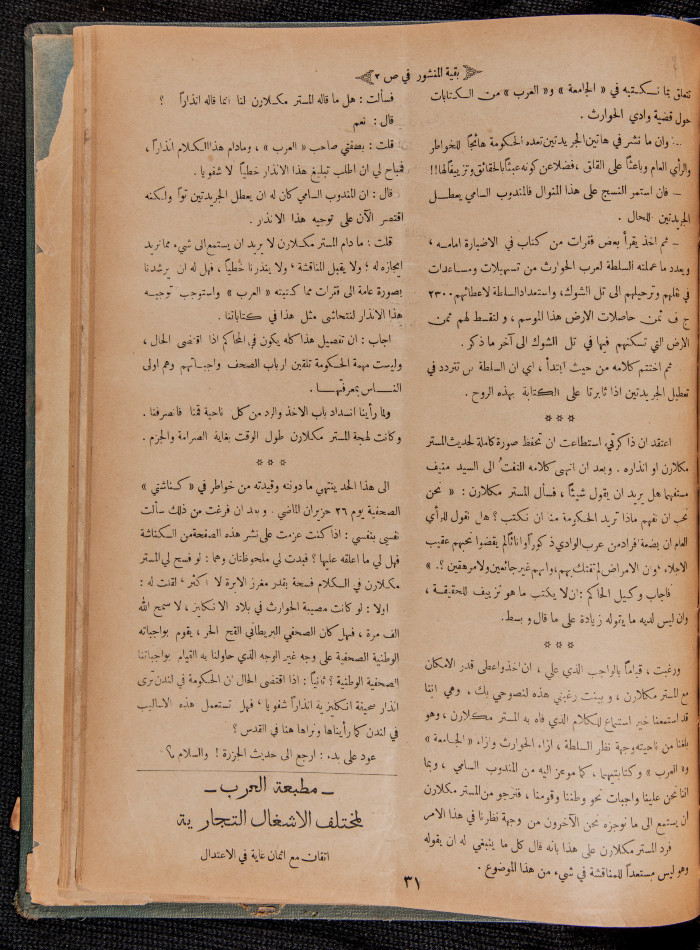 بقية المنشور في ص ٢
تتعلق بما نكتبه في « الجامعة » و« العرب » من الكتابات
حول قضية وادي الحوارث .
.. وان ما نشر في هاتين الجريدتين تعده الحكومة هائجاً للخواطر
والرأي العام وباعثاً على القلق ، فضلا عن كونه عبثاً بالحقائق وتزييفاً لها !!
– فان استمر النسج على هذا المنوال فالمندوب السامي يعطل
الجريدتين للحال .
– ثم اخذ يقرأ بعض فقرات من كتاب في الاضبارة امامه ،
ويعدد ما عملته السلطة لعرب الحوارث من تسهيلات ومساعدات
في نقلهم وترحيلهم الى تل الشوك ، واستعداد السلطة لاعطائهم ٢٣٠٠
ج ف ثمن حاصلات الارض هذا الموسم ، والتقسط لهم ثمن
الارض التي تسكنهم فيها في تل الشوك الى آخر ما ذكر .
ثم اختتم كلامه من حيث ابتدأ ، اي ان السلطة لن تتردد في
تعطيل الجريدتين اذا ثابرتا على الكتابة بهذه الروح .
* * *
اعتقد ان ذاكرتي استطاعت ان تحفظ صورة كاملة لحديث المستر
مكلارن او انذاره . وبعد ان انتهى كلامه التفتُ الى السيد منيف
مستفهما هل يريد ان يقول شيئاً ، فسأل المستر مكلارن : « نحن
نحب ان نفهم ماذا تريد الحكومة منا ان نكتب ؟ هل نقول للرأي
العام ان بضعة افراد من عرب الوادي ذكوراً واناثاً لم يقضوا نحبهم عقيب
الاجلاء ، وان الامراض لم تفتك بهم ، وانهم غير جائعين ولا مرهقين ؟ . »
فاجاب وكيل الحاكم : ان لا يكتب ما هو تزييف للحقيقة ،
وان ليس لديه ما يقوله زيادة على ما قال وبسط .
* * *
ورغبت ، قياماً بالواجب الذي علي ، ان آخذ واعطى قدر الامكان
مع المستر مكلارن ، وبينت رغبتي هذه لنصوحي بك . وهي اننا
قد استمعنا خير استماع للكلام الذي فاه به المستر مكلارن ، وهو
بلغنا من ناحيته وجهة نظر السلطة ، ازاء الحوارث وازاء « الجامعة »
و« العرب » وكتابتيهما ، كما موعز اليه من المندوب السامي ، وبما
اننا نحن علينا واجبات نحو وطننا وقومنا ، فنرجو من المستر مكلارن
ان يستمع الى ما نوجزه نحن الآخرون من وجهة نظرنا في هذا الامر
فرد المستر مكلارن على هذا بانه قال كل ما ينبغي له ان يقوله
وهو ليس مستعداً للمناقشة في شيء من هذا الموضوع .
فسألت : هل ما قاله المستر مكلارن لنا انما قاله انذاراً ؟
قال : نعم
قلت : بصفتي صاحب « العرب » ، ومادام هذا الكلام انذاراً ،
فمباح لي ان اطلب تبليغ هذا الانذار خطياً لا شفويا .
قال : ان المندوب السامي كان له ان يعطل الجريدتين توّاً ولكنه
اقتصر الآن على توجيه هذا الانذار .
قلت : ما دام المستر مكلارن لا يريد ان يستمع الى شيء مما نريد
ايجازه له ؛ ولا يقبل المناقشة ، ولا ينذرنا خطياً ، فهل له ان يرشدنا
بصورة عامة الى فقرات مما كتبته « العرب » واستوجب توجيه
هذا الانذار لنتحاشى مثل هذا في كتاباتنا .
اجاب : ان تفصيل هذا كله يكون في المحاكم اذا اقتضى الحال ،
وليست مهمة الحكومة تلقين ارباب الصحف واجباتهم وهم اولى
الناس بمعرفتها .
ولما رأينا انسداد باب الاخذ والرد من كل ناحية قمنا فانصرفنا .
وكانت لهجة المستر مكلارن طول الوقت بغاية الصرامة والجزم .
* * *
الى هذا الحد ينتهي ما دونته وقيدته من خواطر في « كناشتي »
الصحفية يوم ٢٦ حزيران الماضي . وبعد ان فرغت من ذلك سألت
نفسي بنفسي : اذا كنت عزمت على نشر هذه الصفحة من الكناشة
فهل لي ما اعلقه عليها ؟ فبدت لي ملحوظتان وهما : لو فسح لي المستر
مكلارن في الكلام فسحة بقدر مغرز الابرة لا اكثر ، لقلت له :
اولا : لو كانت مصيبة الحوارث في بلاد الانكليز ، لا سمح الله
الف مرة ، فهل كان الصحفي البريطاني القح الحر ، يقوم بواجباته
الوطنية الصحفية على وجه غير الوجه الذي حاولنا به القيام بواجباتنا
الصحفية الوطنية ؟ ثانياً : اذا اقتضى الحال ان الحكومة في لندن ترى
انذار صحيفة انكليزية انذاراً شفويا ، فهل تستعمل هذه الاساليب
في لندن كما رأيناها ونراها هنا في القدس ؟
عود على بدء : ارجع الى حديث الجزرة ! والسلام
– مطبعة العرب –
لمختلف الاشغال التجارية
اتقان مع اثمان غاية في الاعتدال
٣١